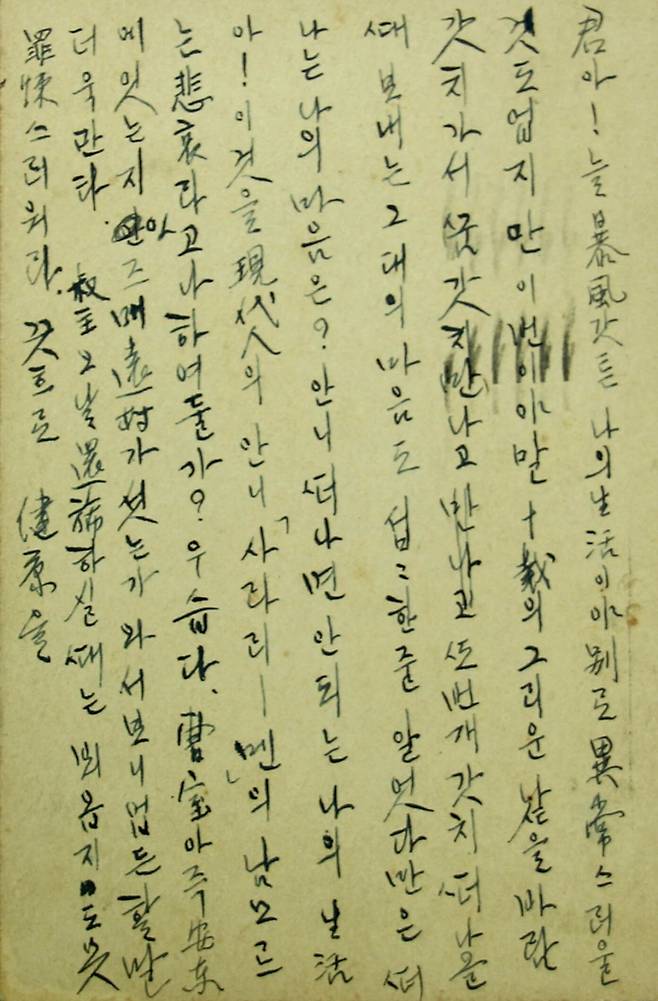 君아! 늘 暴風갓튼 나의 生活이야 別로 異常스러울
것도 업지만 이번이야말 十載의 그리운 낯을 바람
갓치 가서 갓치 만나고 만나고 또 번개갓치 떠나올
때 보내는 그대의 마음도 섭섭한 줄 알엇다만은 떠
나는 나의 마음은? 안니 떠나면 안 되는 나의 生活
아! 이것을 現代人의 안니 「사라리ー멘」의 남모르
는 悲哀라고나 하여둘가? 우습다. 曺室아즉 安東
에 잇는지 아즈매 遠村가섯는가 와서 보니 업든
더욱 만타. 叔主 오날 還 하실 때는 뵈옵지도 못
罪悚스러워라. 끗흐로 健康을